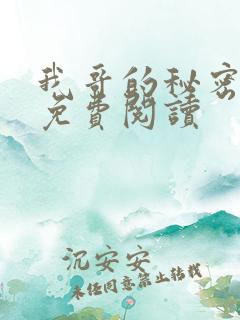 我哥的秘密
免費閱讀
沉安安
未经同意禁止转载